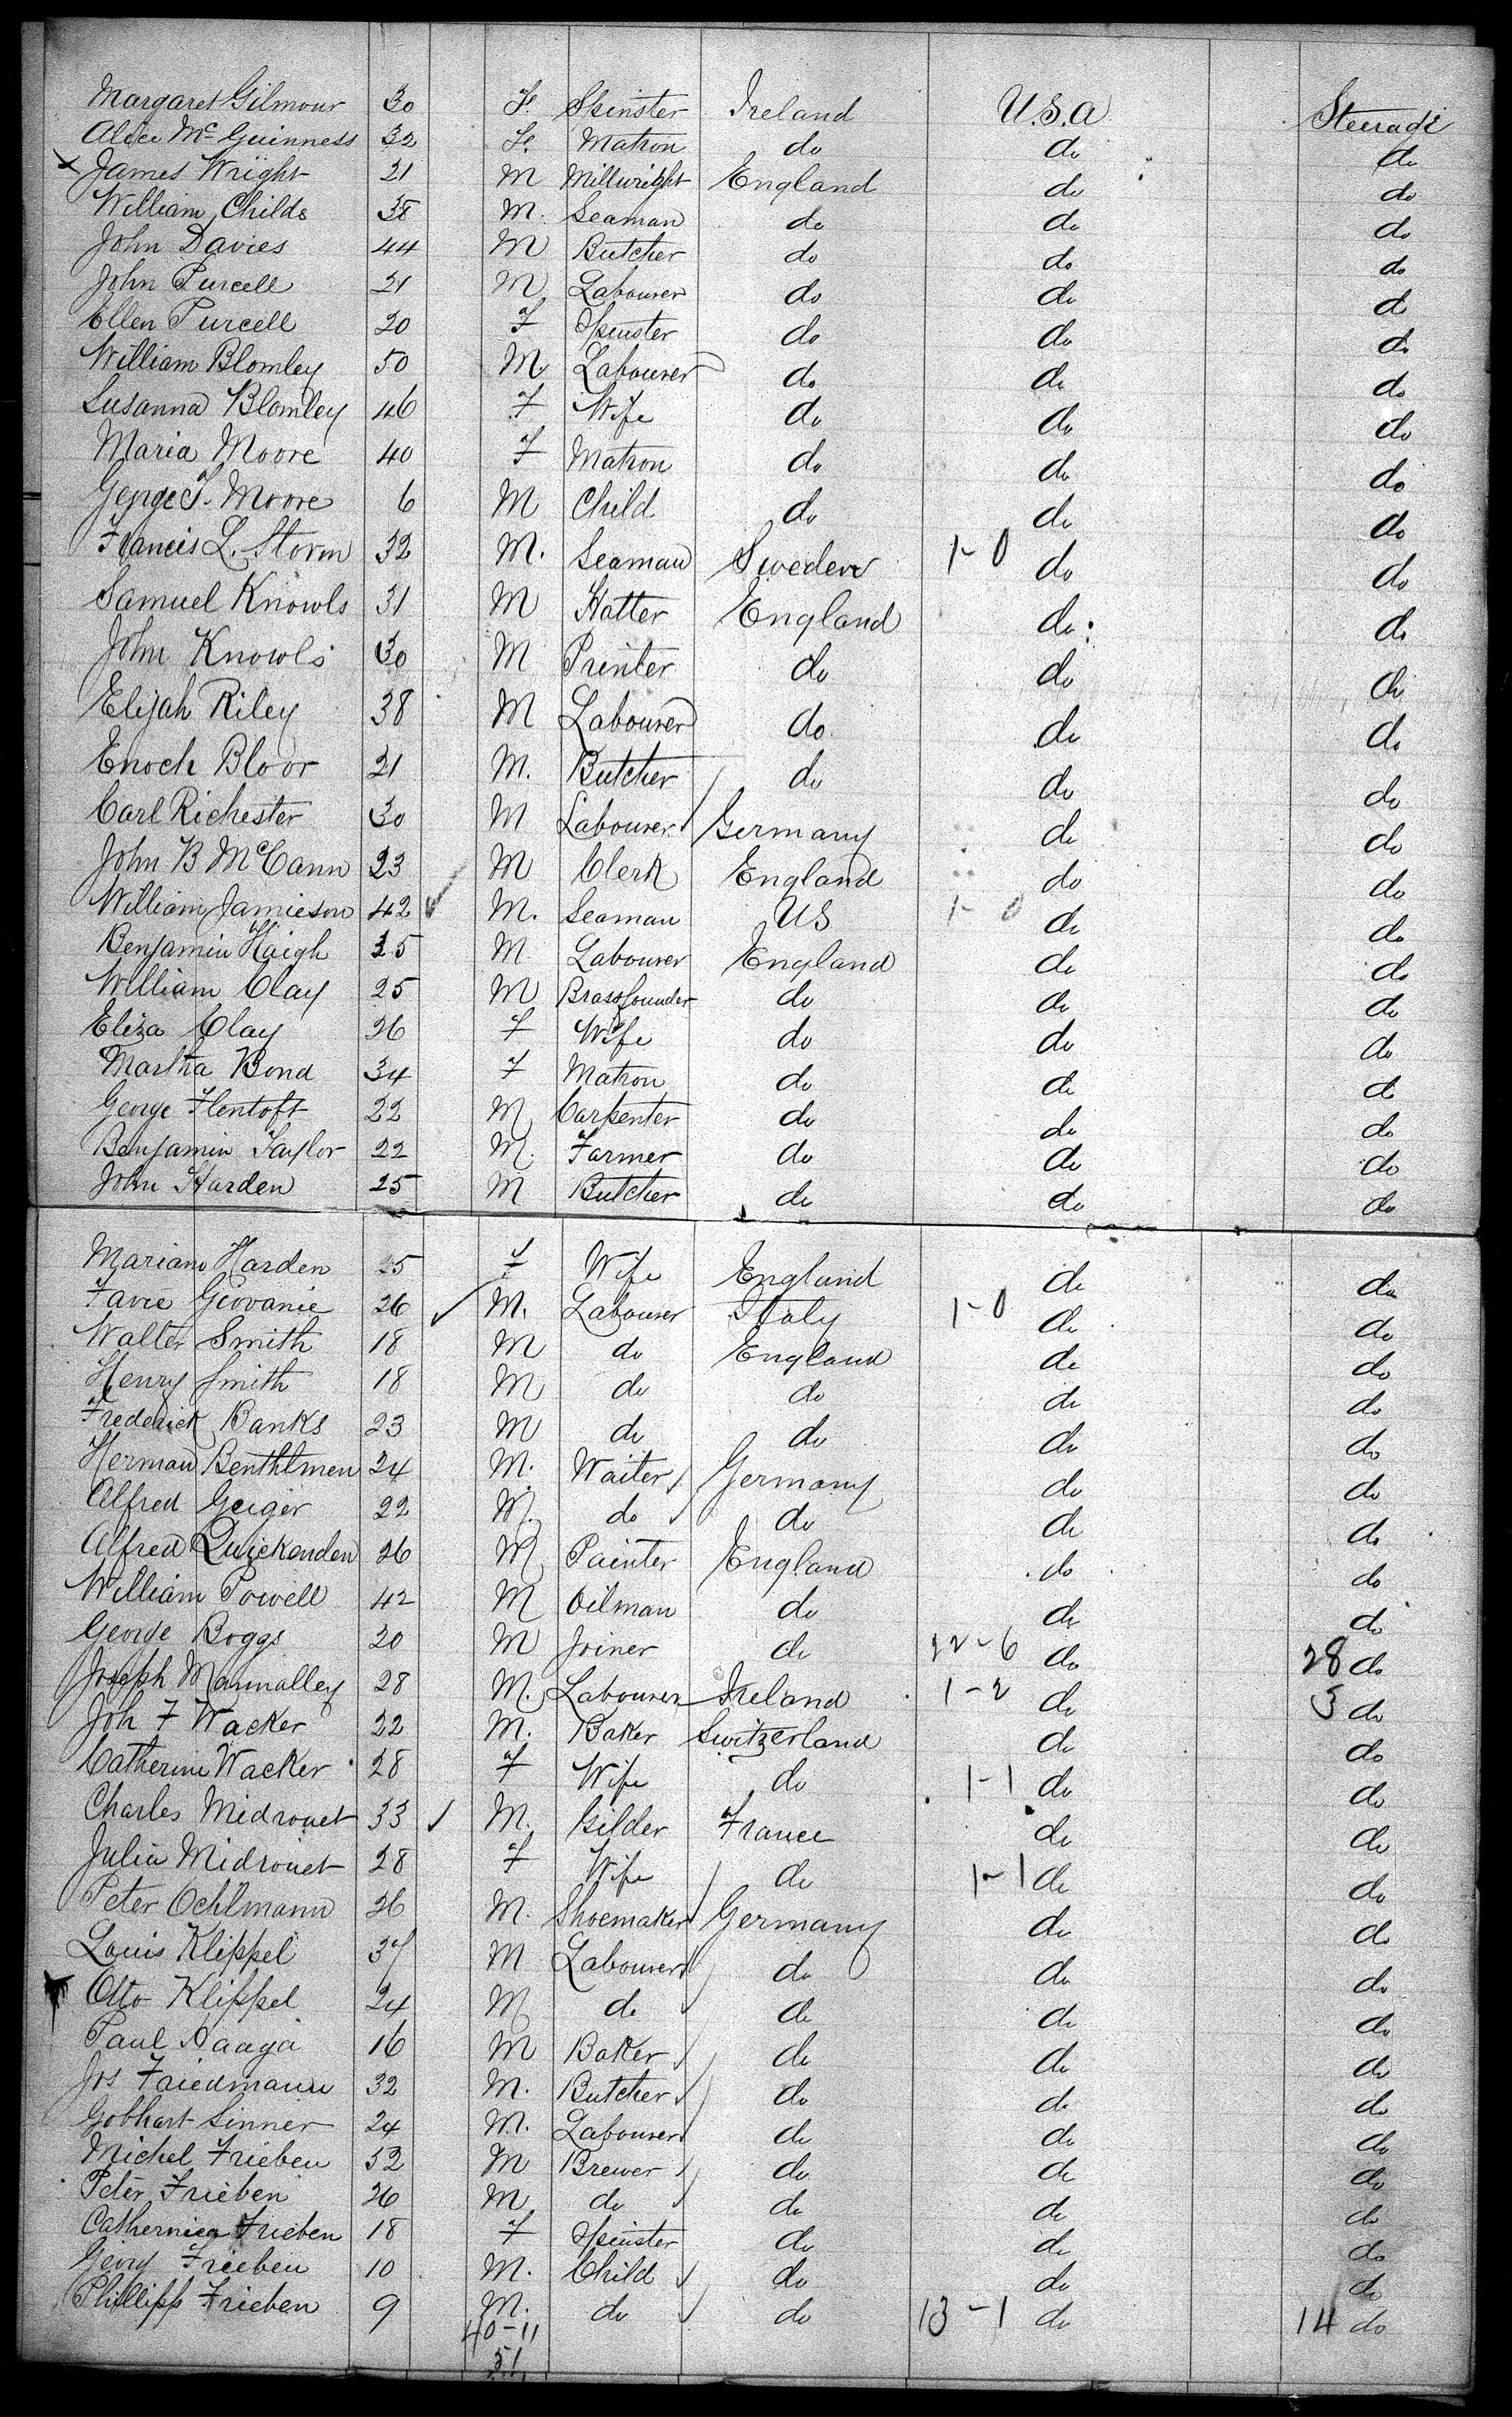 Margaret Gilmour 30 F. Spinster Ireland U.S.A. Steerage
Alice Mc Guinness 32 F. Matron do do do
James Wright 21 M Millwright England do do
William Childs 38 M. Seaman do do do
John Davies 44 M Butcher do do do
John Purcell 21 M Labourer do do do
Ellen Purcell 20 F Spinster do do do
William Blomley 50 M. Labourer do do do
Susanna Blomley 46 F Wife do do do
Maria Moore 40 F Matron do do do
George T. Moore 6 M Child do do do
Francis L. Storm 32 M. Seaman Sweden 1-0 do do
Samuel Knowls 31 M Hatter England do do
John Knowls 30 M Printer do do do
Elijah Riley 38 M Labourer do do do
Enoch Bloor 21 M. Butcher do do do
Carl Richester 30 M Labourer Germany do do
John B McCann 23 M Clerk England do do
William Jamieson 42 M. Seaman US 1-0 do do
Benjamin Haigh 35 M Labourer England do do
William Clay 25 M Brassfounder do do do
Eliza Clay 26 F Wife do do do
Martha Bond 34 F Matron do do do
George Flentoft 22 M Carpenter do do do
Benjamin Taylor 22 M. Farmer do do do
John Harden 25 M Butcher do do do
Mariann Harden 25 F Wife England do do
Favre Giovanie 26 M. Labourer Italy 1-0 do do
Walter Smith 18 M do England do do
Henry Smith 18 M do do do do
Frederick Banks 23 M do do do do
Herman Benthtmen 24 M. Waiter Germany do do
Alfred Geiger 22 M. do do do do
Alfred Quickenden 26 M Painter England do do
William Powell 42 M Oilman do do do
George Boggs 20 M Joiner do 22-6 do 28 do
Joseph Mannalley 28 M. Labourer Ireland 1-2 do 3 do
Joh F Wacker 22 M. Baker Switzerland do do
Catherine Wacker 28 F Wife do 1-1 do do
Charles Midrouet 33 M. Gilder France do do
Julia Midrouet 28 F Wife do 1-1 do do
Peter Oehlmann 26 M. Shoemaker Germany do do
Louis Klippel 37 M Labourer do do do
Otto Klippel 24 M do do do do
Paul Haaga 16 M Baker do do do
Jos Friedmann 32 M. Butcher do do do
Gobhart Sinner 24 M. Labourer do do do
Michel Frieben 52 M Brewer do do do
Peter Frieben 26 M do do do do
Catherniea Frieben 18 F Spinster do do do
Georg Frieben 10 M. Child do do do
Phillipp Frieben 9 M. do do 13-1 do 14 do
40-11
51